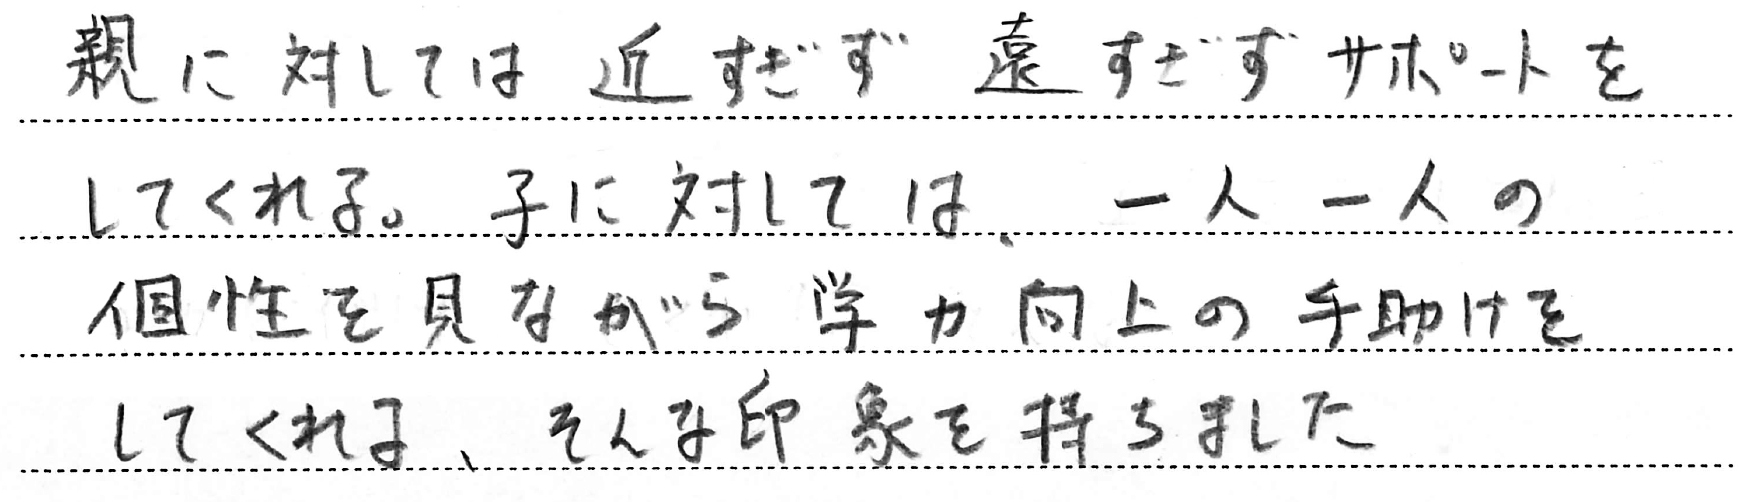 親に対しては近すぎず遠すぎずサポートを
してくれる。子に対しては、一人一人の
個性を見ながら学力向上の手助けを
してくれる、そんな印象を持ちました